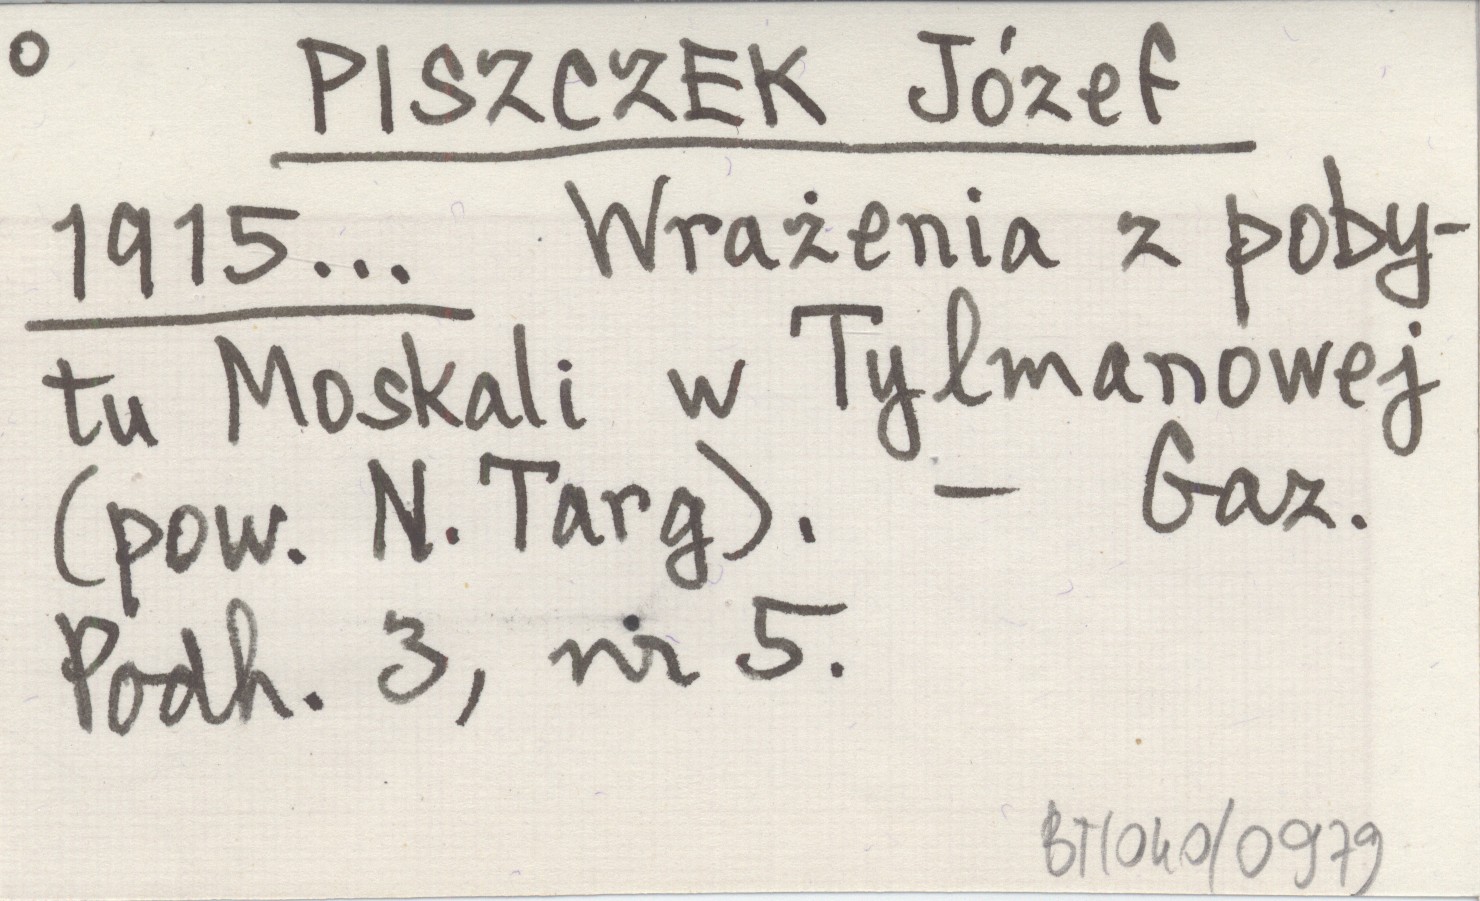 o PISZCZEK Józef
1915... Wrażenia z poby-
tu Moskali w Tylmanowej
(pow. N. Targ). — Gaz.
Podh. 3, nr 5.
BT/040/0979